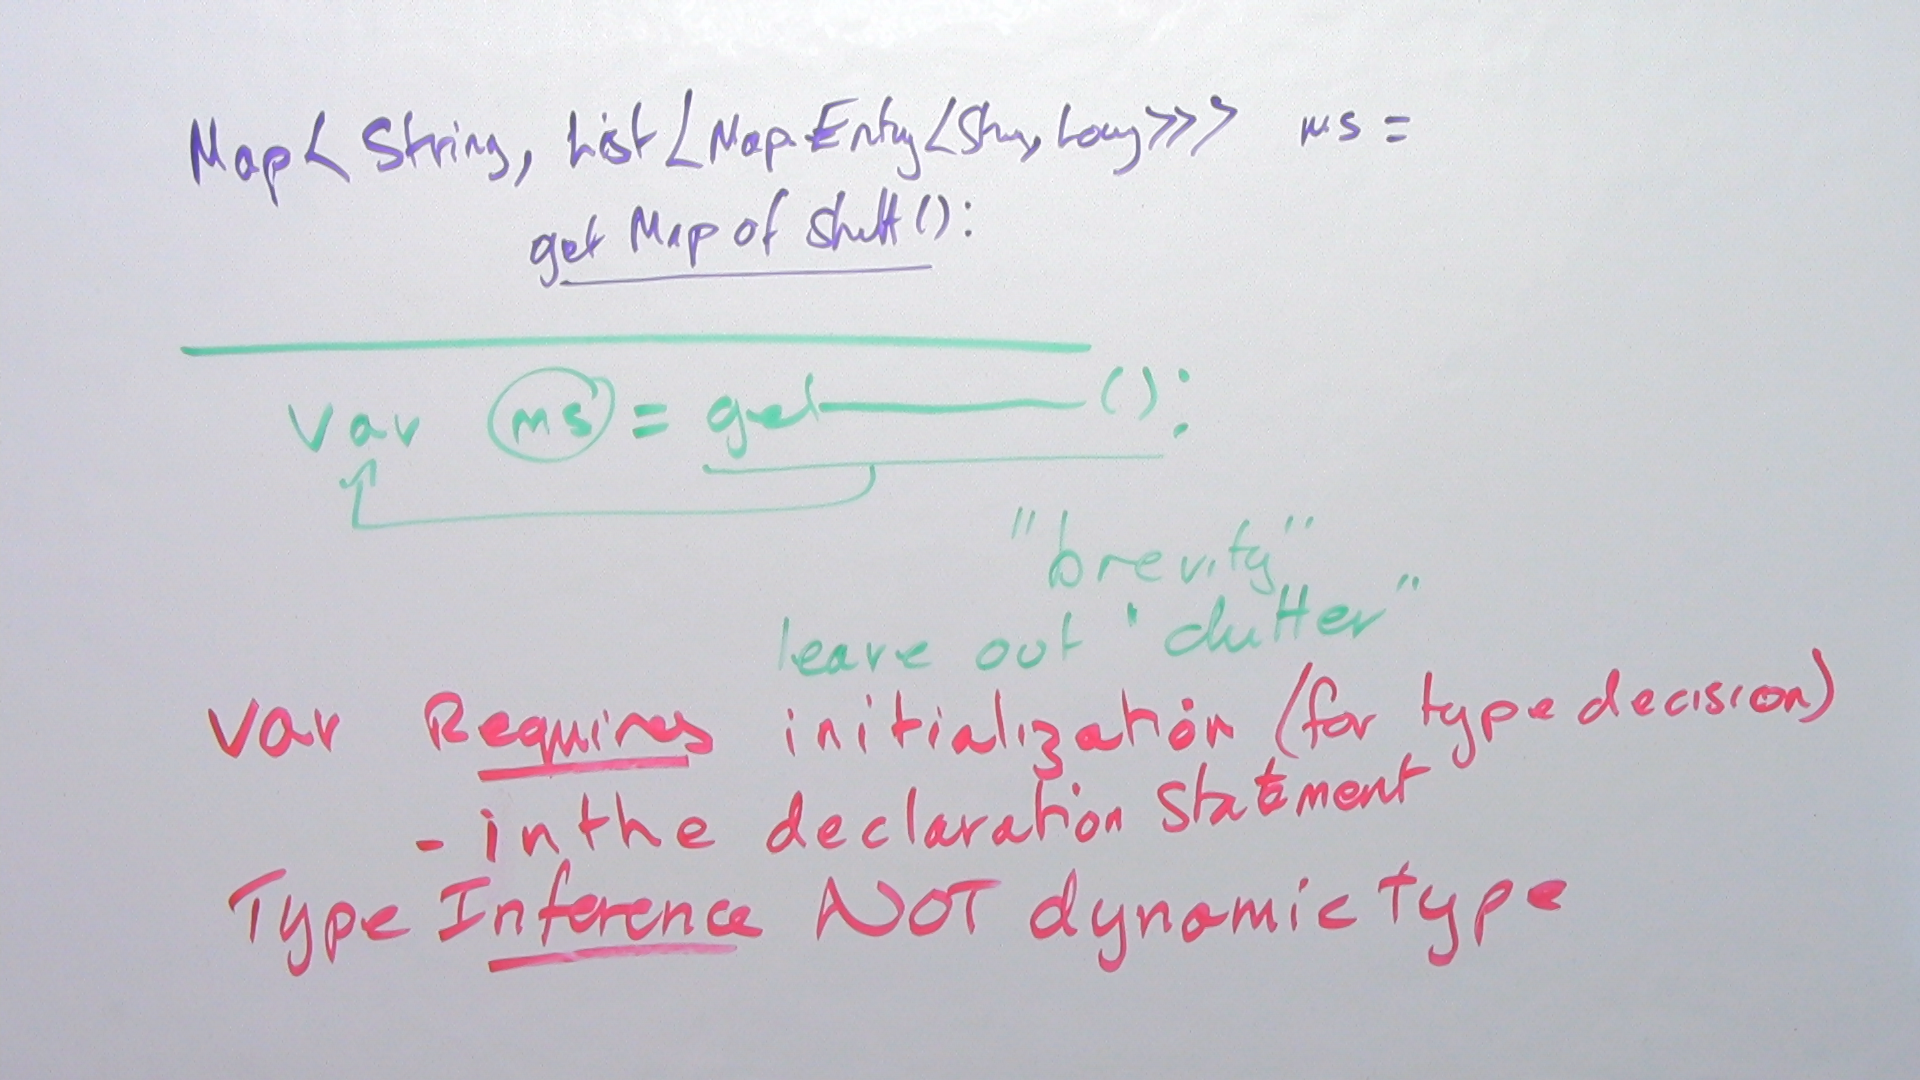 Map< String, List<Map.Entry<Str, Long>>> ms =
get Map of Stuff():
var ms = get ():
"brevity"
leave out "clutter"
var Requires initialization (for type decision)
- in the declaration Statement
Type Inference NOT dynamic type